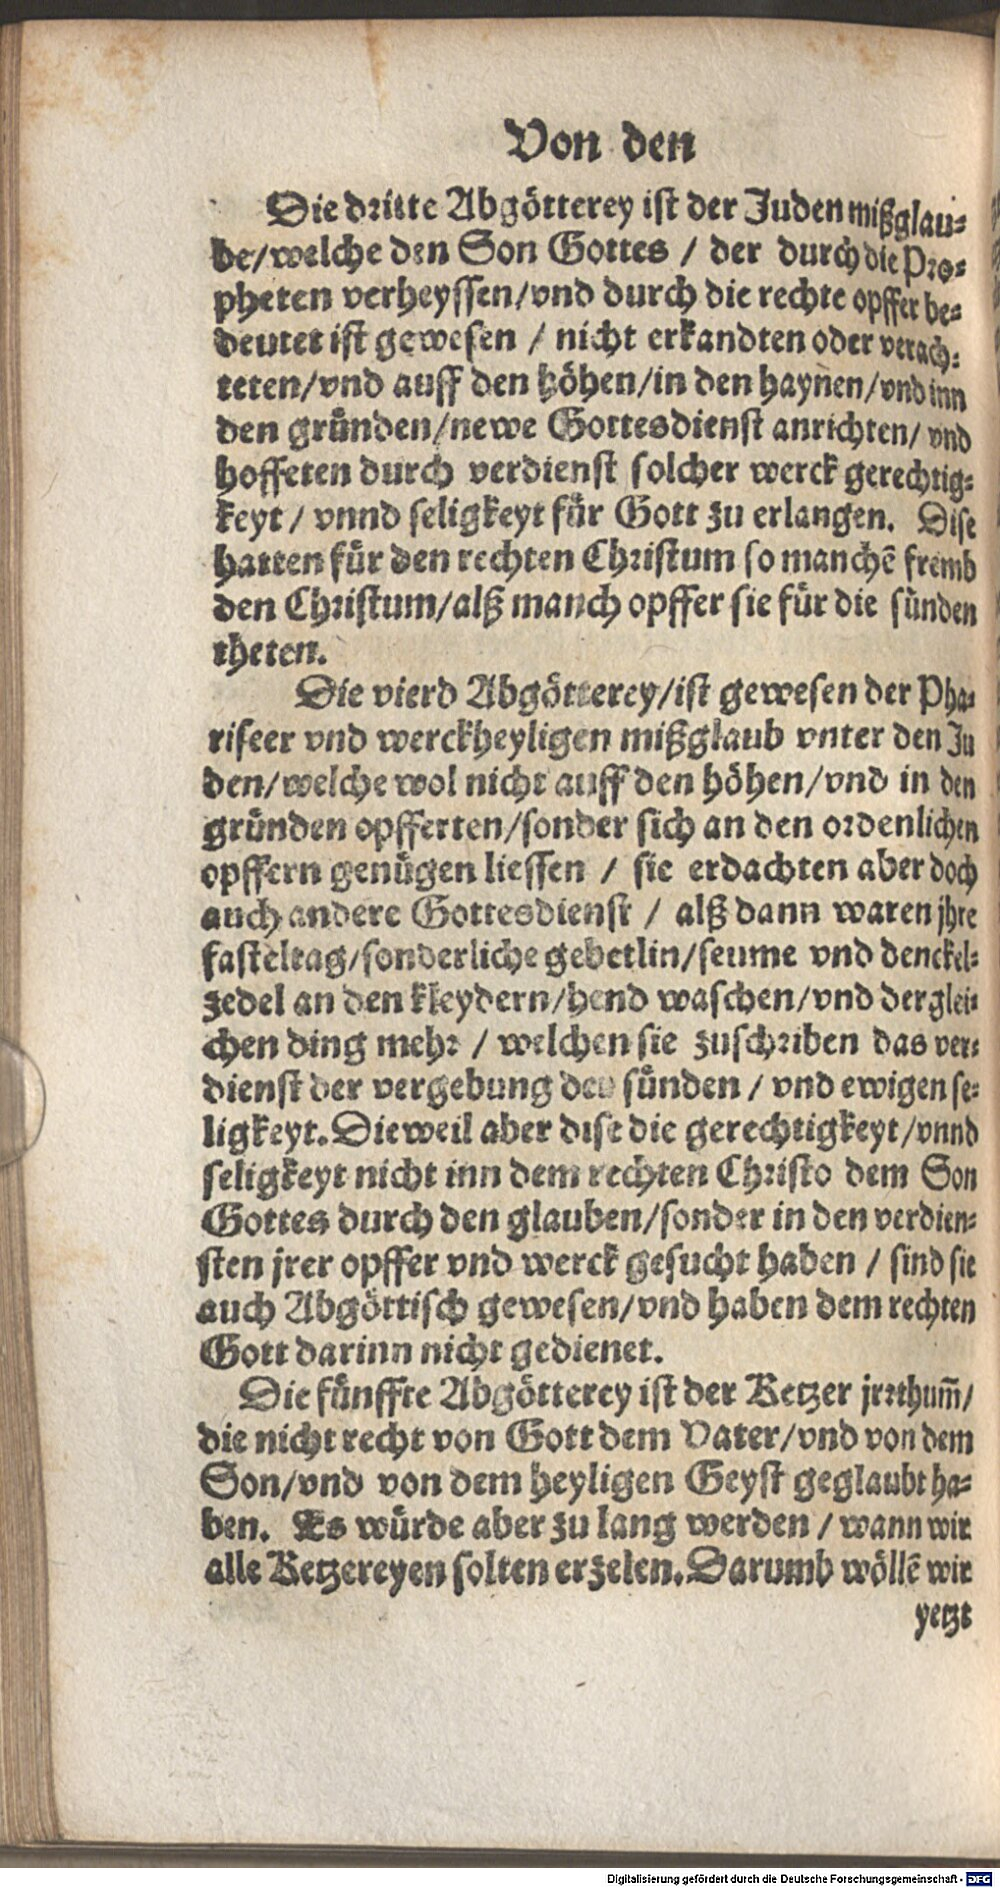 Von den
Die dritte Abgötterey ist der Juden mißglau-
be/welche den Son Gottes / der durch die Pro-
pheten verheyssen/vnd durch die rechte opffer be-
deutet ist gewesen / nicht erkandten oder verach-
teten/vnd auff den höhen/in den haynen/vnd inn
den gründen/newe Gottesdienst anrichten/ vnd
hoffeten durch verdienst solcher werck gerechtig-
keyt / vnnd seligkeyt für Gott zu erlangen. Dise
hatten für den rechten Christum so manchẽ fremb
den Christum/alß manch opffer sie für die sünden
theten.
Die vierd Abgötterey/ist gewesen der Pha-
riseer vnd werckheyligen mißglaub vnter den Ju
den/welche wol nicht auff den höhen/vnd in den
gründen opfferten/sonder sich an den ordenlichen
opffern genügen liessen / sie erdachten aber doch
auch andere Gottesdienst / alß dann waren jhre
fasteltag/sonderliche gebetlin/seume vnd denckel-
zedel an den kleydern/hend waschen/vnd derglei-
chen ding mehr / welchen sie zuschriben das ver-
dienst der vergebung der sünden / vnd ewigen se-
ligkeyt. Dieweil aber dise die gerechtigkeyt/vnnd
seligkeyt nicht inn dem rechten Christo dem Son
Gottes durch den glauben/sonder in den verdien-
sten jrer opffer vnd werck gesucht haben / sind sie
auch Abgöttisch gewesen/vnd haben dem rechten
Gott darinn nicht gedienet.
Die fünffte Abgötterey ist der Ketzer jrrthum̃/
die nicht recht von Gott dem Vater/vnd von dem
Son/vnd von dem heyligen Geyst geglaubt ha-
ben. Es würde aber zu lang werden / wann wir
alle Ketzereyen solten erzelen. Darumb wöllẽ wir
yetzt
Digitalisierung gefördert durch die Deutsche Forschungsgemeinschaft - DFG